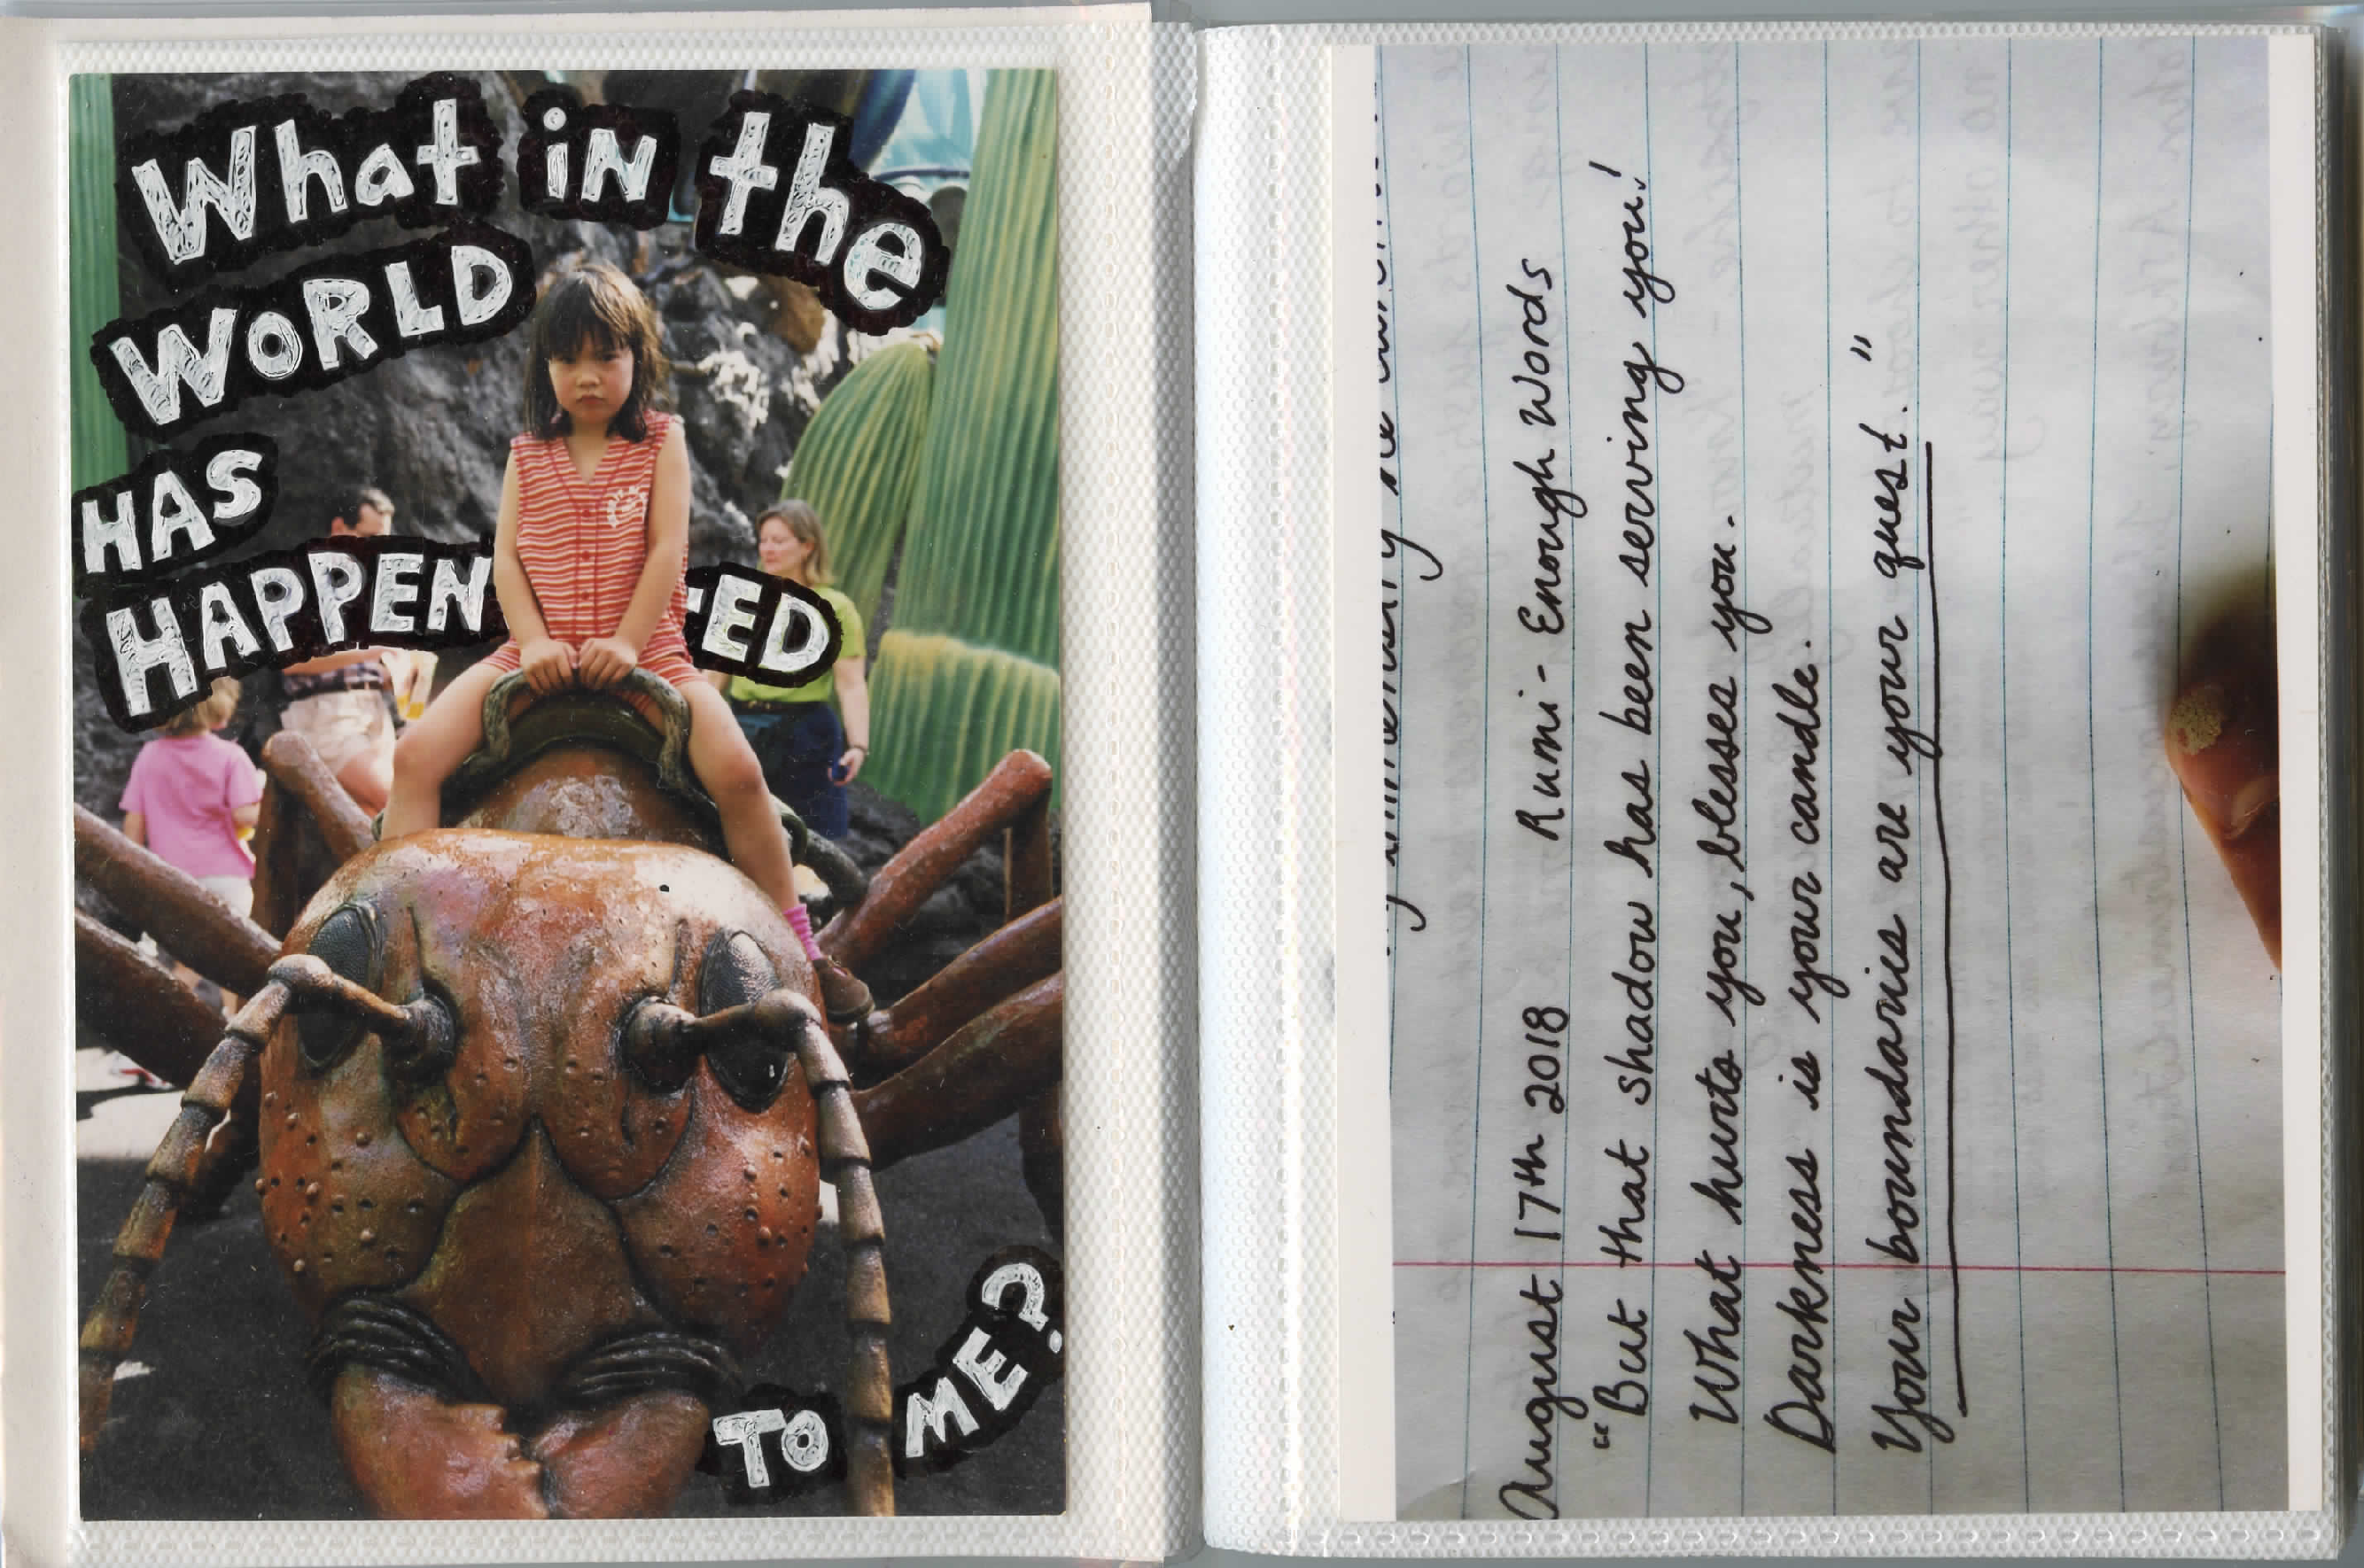 What in the
WORLD
HAS
HAPPENED
TO ME?
August 17th 2018 Rumi - Enough Words
"But that shadow has been serving you!
What hurts you, blesses you.
Darkness is your candle.
Your boundaries are your quest."